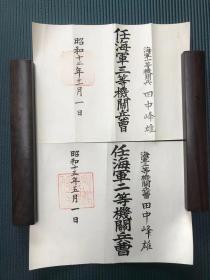 海軍一等機關兵 田中峰雄
任海軍三等機關兵曹
昭和十三年十一月一日
海軍三等機關兵曹 田中峰雄
任海軍二等機關兵曹
昭和十五年五月一日